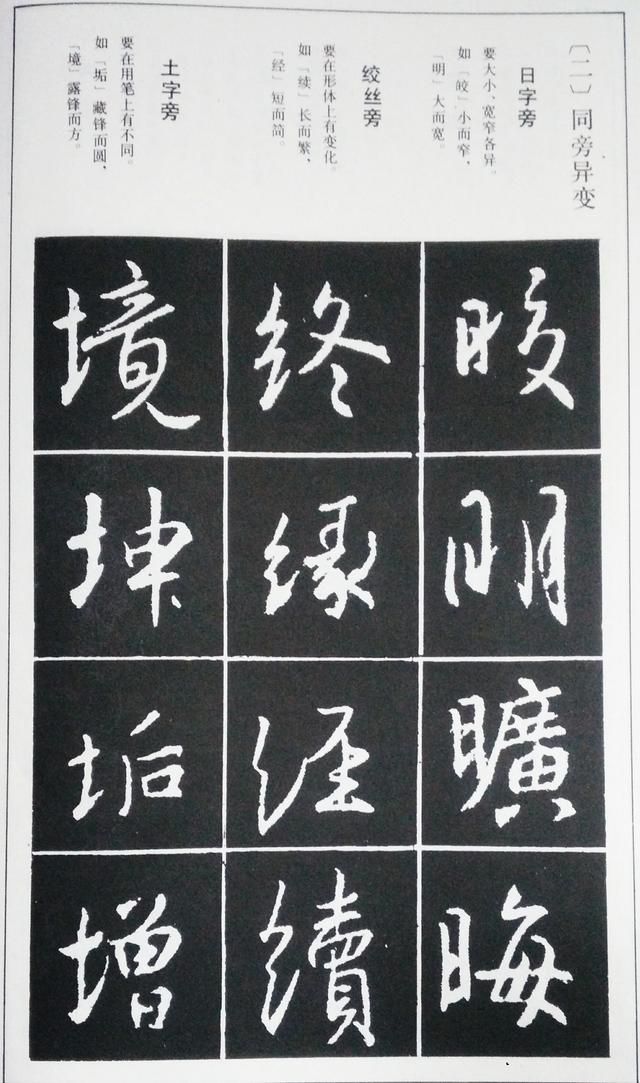 〔二〕同旁异变
日字旁
要大小、宽窄各异。
如「皎」小而窄、
「明」大而宽。
绞丝旁
要在形体上有变化。
如「续」长而繁、
「经」短而简。
土字旁
要在用笔上有不同。
如「垢」藏锋而圆、
「境」露锋而方。
晈明曠晦
終緣經續
境坤垢增